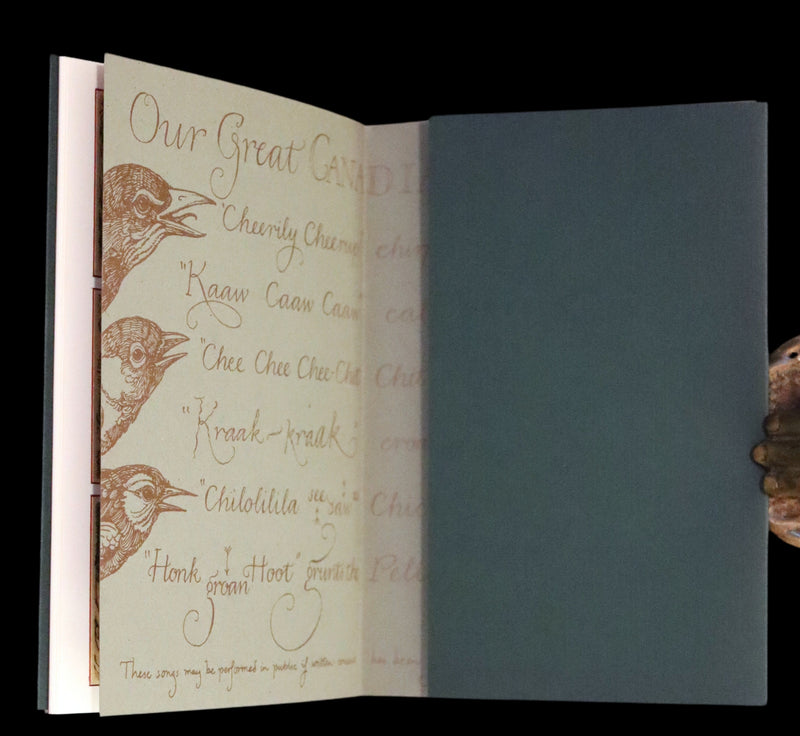 Our Great CANAD
"Cheerily Cheerio
"Kaaw Caaw Caaw"
"Chee Chee Chee-Che
"Kraak-kraak"
"Chilolilila see saw"
"Honk groan Hoot" grunts the Peli
These songs may be performed in public if written has been